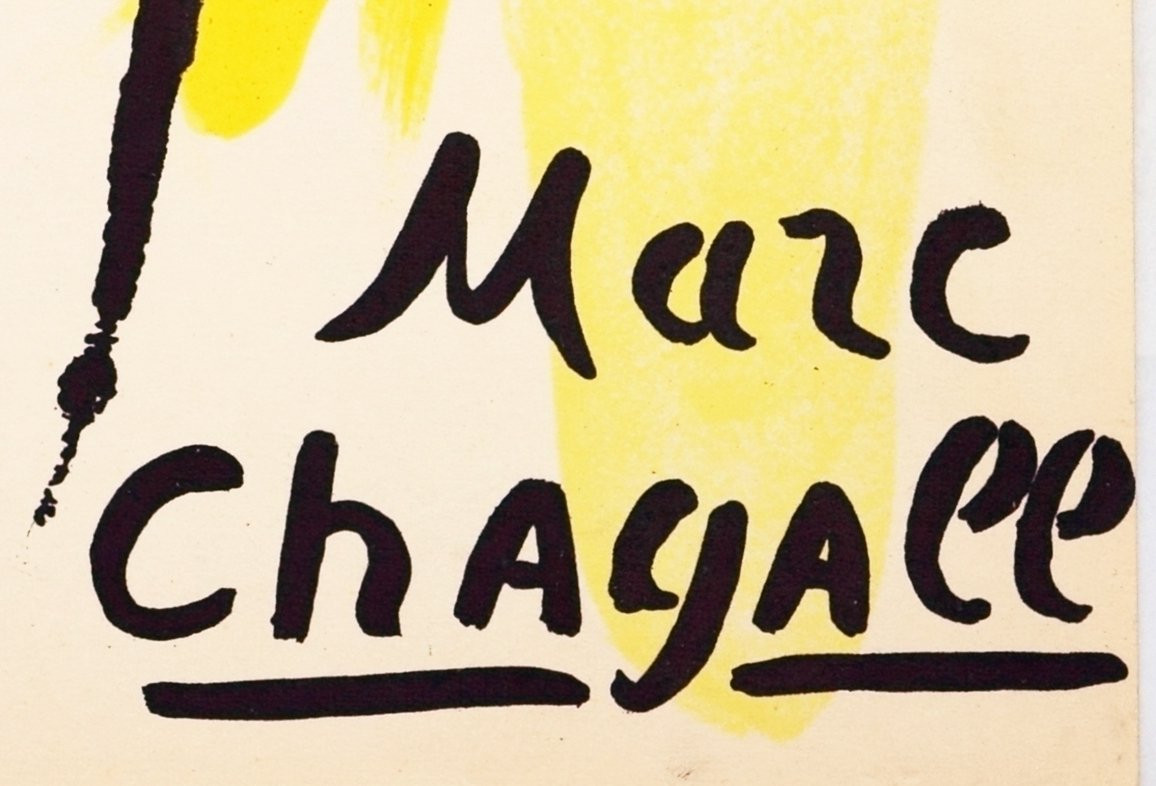 Marc
ChAgAll